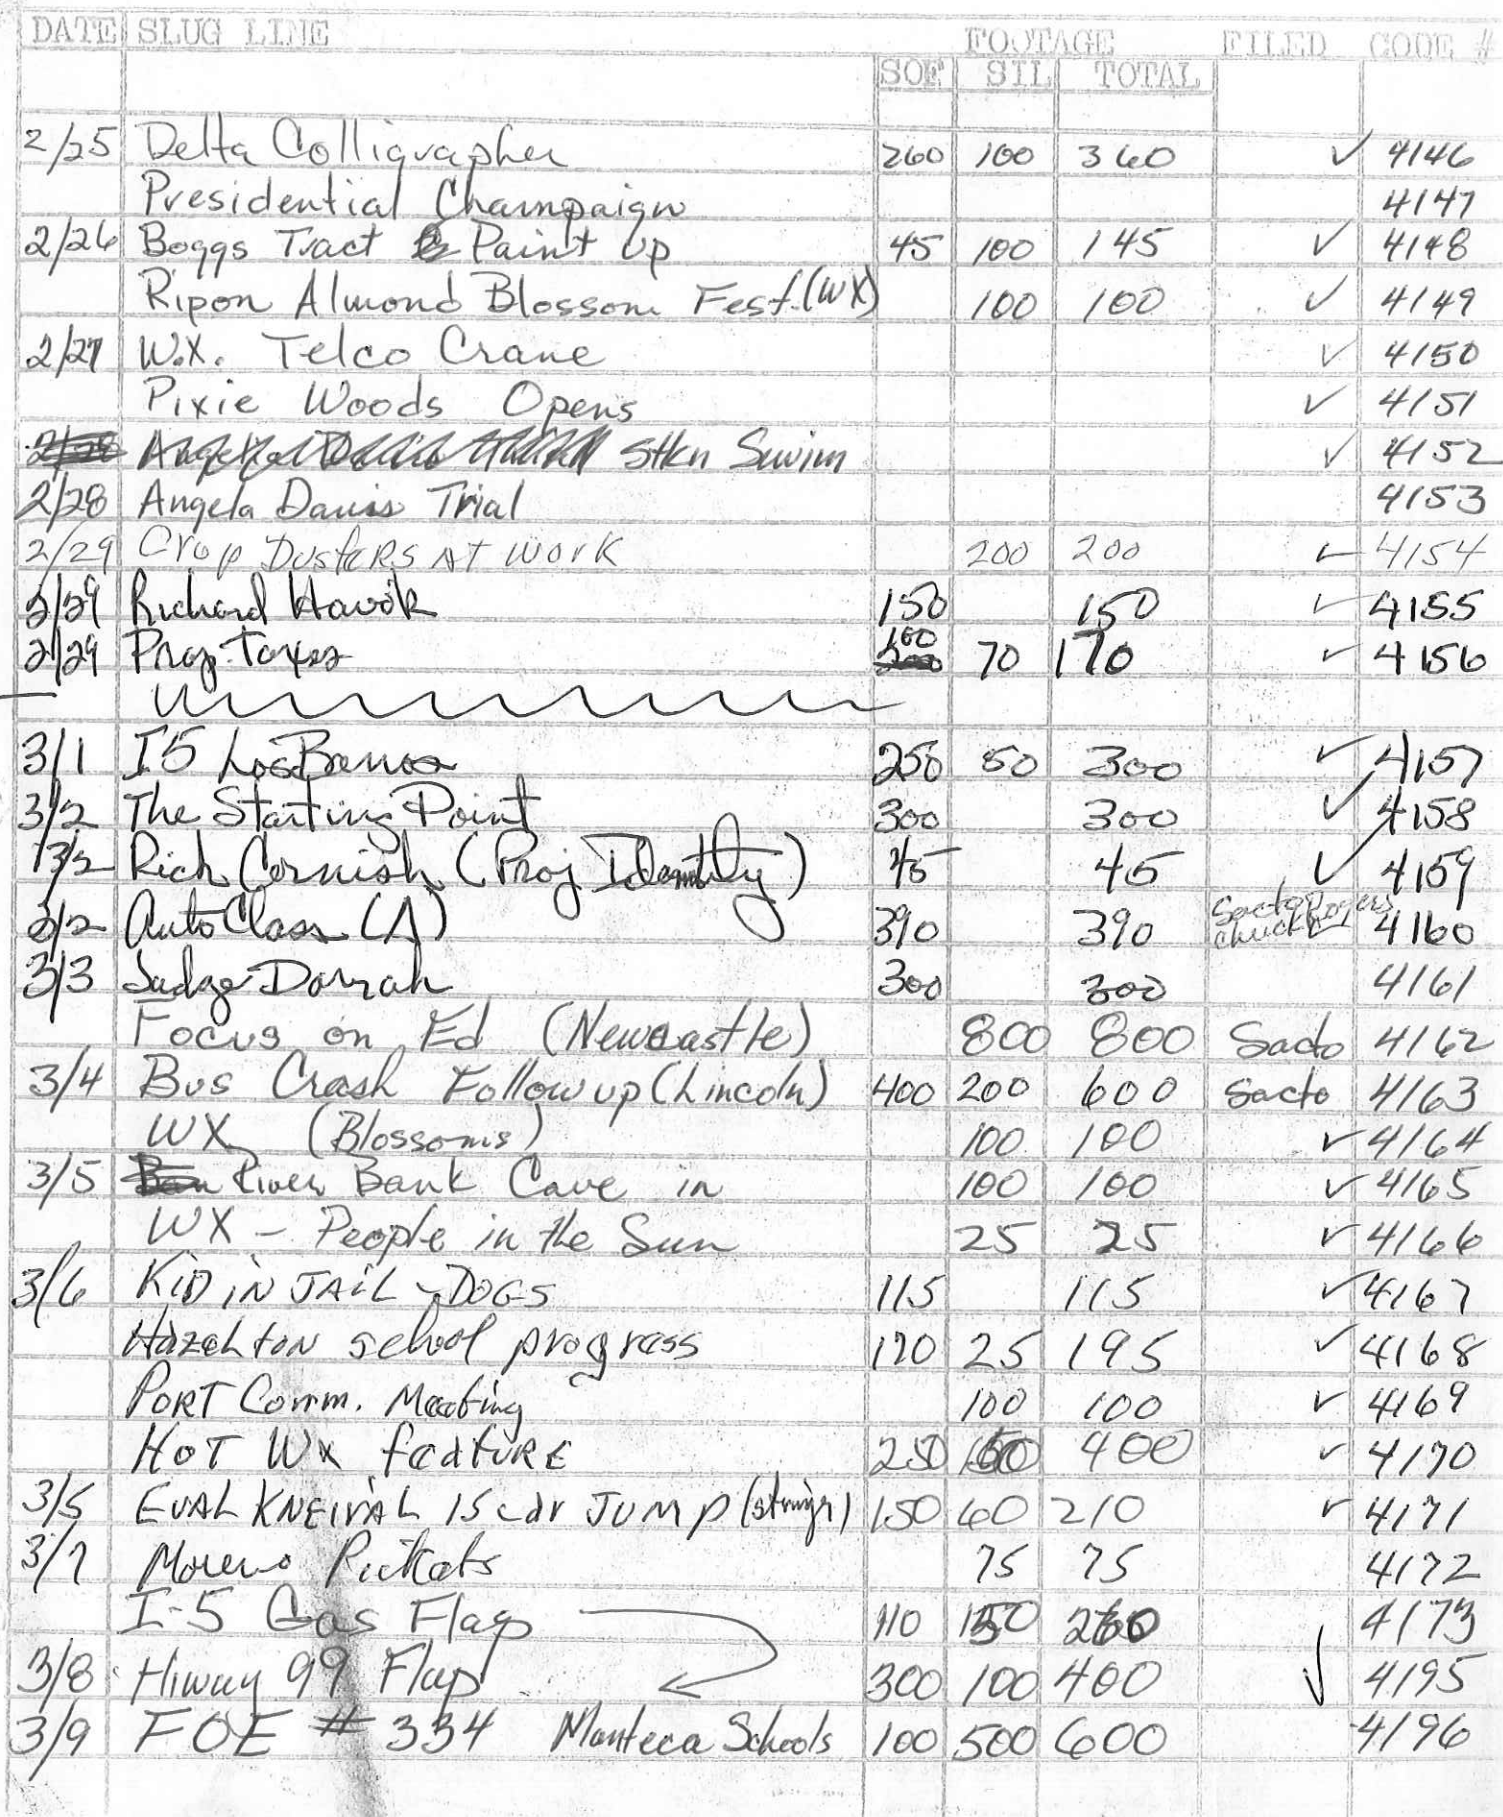 DATE SLUG LINE FOOTAGE FILED CODE #
SOF SIL TOTAL
2/25 Delta Colligrapher 260 100 360 ✓ 4146
Presidential Champaign 4147
2/26 Boggs Tract Paint up 45 100 145 ✓ 4148
Ripon Almond Blossom Fest. (WX) 100 100 ✓ 4149
2/27 W.X. Telco Crane ✓ 4150
Pixie Woods Opens ✓ 4151
Stkn Swim ✓ 4152
2/28 Angela Davis Trial 4153
2/29 Crop Dusters AT WORK 200 200 ✓ 4154
2/29 Richard 150 150 ✓ 4155
2/29 Prop. Taxes 100 70 170 ✓ 4156
3/1 I5 Los Banos 250 50 300 ✓ 4157
3/2 The Starting Point 300 300 ✓ 4158
3/2 Rich Cornish (Proj Identity) 45 45 ✓ 4159
3/2 Auto Class (A) 390 390 Sacto Chuck Rogers 4160
3/3 Judge Darrah 300 300 4161
Focus on Ed (Newcastle) 800 800 Sacto 4162
3/4 Bus Crash Follow up (Lincoln) 400 200 600 Sacto 4163
WX (Blossoms) 100 100 ✓ 4164
3/5 River Bank Cave in 100 100 ✓ 4165
WX - People in the Sun 25 25 ✓ 4166
3/6 KID IN JAIL - DOGS 115 115 ✓ 4167
Hazelton school progress 170 25 195 ✓ 4168
PORT Comm. Meeting 100 100 ✓ 4169
HOT WX feature 250 150 400 ✓ 4170
3/5 EVAL KNEIVAL 15 car JUMP (stringr) 150 60 210 ✓ 4171
3/7 Moreno Pickets 75 75 4172
I-5 Gas Flap 110 150 260 4173
3/8 Hiway 99 Flap 300 100 400 ✓ 4195
3/9 FOE # 334 Manteca Schools 100 500 600 4196